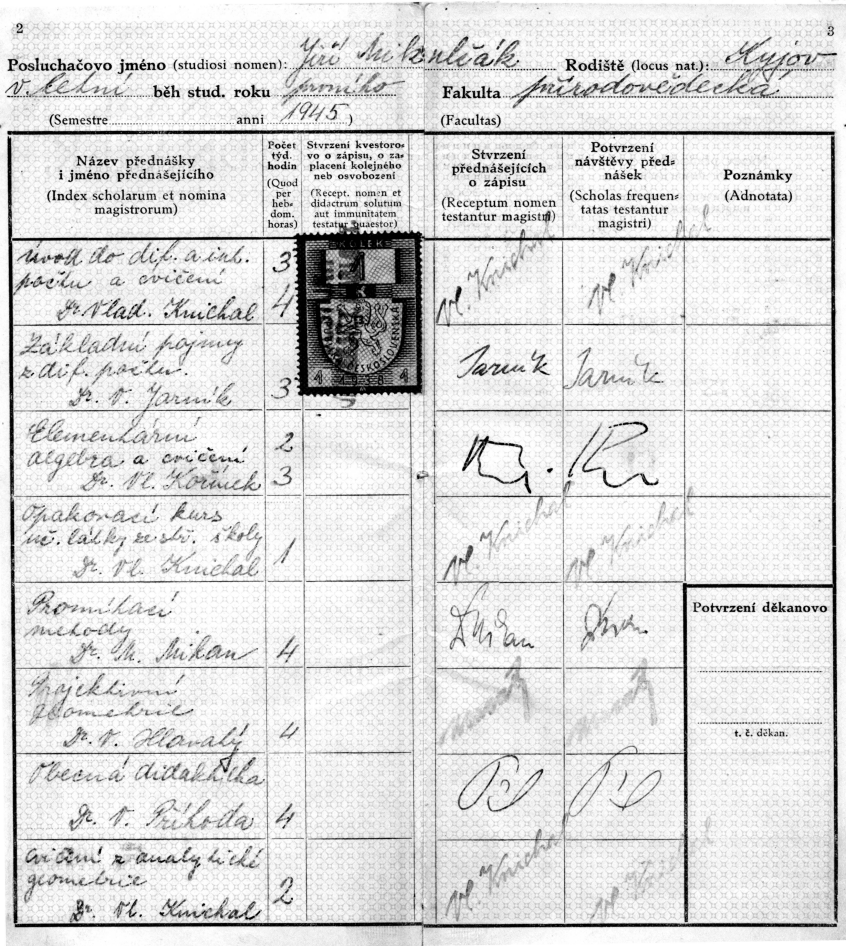 2
3
Posluchačovo jméno (studiosi nomen): Jiří Mikulčák Rodiště (locus nat.): Kyjov
v letní běh stud. roku prvního Fakulta přírodovědecká
(Semestre anni 1945) (Facultas)
Název přednášky
i jméno přednášejícího
(Index scholarum et nomina
magistrorum)
Počet
týd.
hodin
(Quod
per
heb=
dom.
horas)
Stvrzení kvestoro=
vo o zápisu, o za=
placení kolejného
neb osvobození
(Recept. nomen et
didactrum solutum
aut immunitatem
testatur quaestor)
Stvrzení
přednášejících
o zápisu
(Receptum nomen
testantur magistri)
Potvrzení
návštěvy před=
nášek
(Scholas frequen=
tatas testantur
magistri)
Poznámky
(Adnotata)
Úvod do dif. a int. 3
počtu a cvičení
Dr Vlad. Knichal 4
Vl. Knichal Vl. Knichal
KOLEK
ČESKOSLOVENSKÁ
4 1938 4
Základní pojmy
z dif. počtu.
Dr. V. Jarník 3
Jarník Jarník
Elementární 2
algebra a cvičení
Dr. Vl. Kořínek 3
Opakovací kurs
uč. látky ze stř. školy
Dr. Vl. Knichal 1
Vl. Knichal Vl. Knichal
Promítací
metody
Dr. M. Mikan 4
Mikan
Projektivní
geometrie
Dr. V. Hlavatý 4
Obecná didaktika
Dr. V. Příhoda 4
Cvičení z analytické
geometrie
Dr. Vl. Knichal 2
Vl. Knichal Vl. Knichal
Potvrzení děkanovo
t. č. děkan.